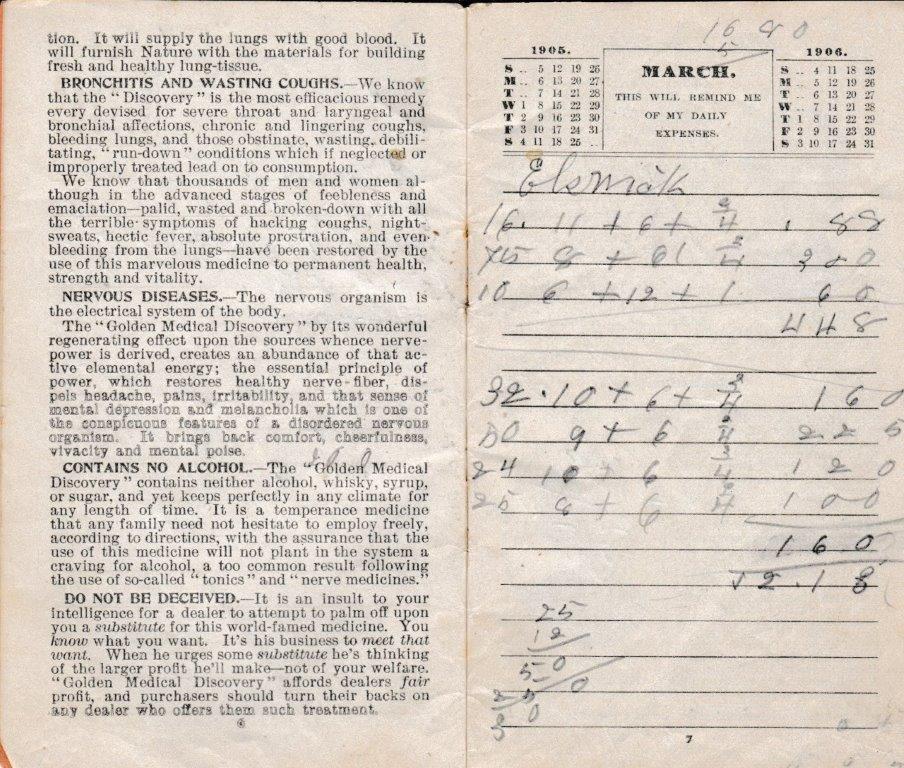 tion. It will supply the lungs with good blood. It
will furnish Nature with the materials for building
fresh and healthy lung-tissue.
BRONCHITIS AND WASTING COUGHS.—We know
that the "Discovery" is the most efficacious remedy
every devised for severe throat and laryngeal and
bronchial affections, chronic and lingering coughs,
bleeding lungs, and those obstinate, wasting, debili-
tating, "run-down" conditions which if neglected or
improperly treated lead on to consumption.
We know that thousands of men and women al-
though in the advanced stages of feebleness and
emaciation—palid, wasted and broken-down with all
the terrible symptoms of hacking coughs, night-
sweats, hectic fever, absolute prostration, and even
bleeding from the lungs—have been restored by the
use of this marvelous medicine to permanent health,
strength and vitality.
NERVOUS DISEASES.—The nervous organism is
the electrical system of the body.
The "Golden Medical Discovery" by its wonderful
regenerating effect upon the sources whence nerve-
power is derived, creates an abundance of that ac-
tive elemental energy; the essential principle of
power, which restores healthy nerve-fiber, dis-
pels headache, pains, irritability, and that sense of
mental depression and melancholia which is one of
the conspicuous features of a disordered nervous
organism. It brings back comfort, cheerfulness,
vivacity and mental poise.
CONTAINS NO ALCOHOL.—The "Golden Medical
Discovery" contains neither alcohol, whisky, syrup,
or sugar, and yet keeps perfectly in any climate for
any length of time. It is a temperance medicine
that any family need not hesitate to employ freely,
according to directions, with the assurance that the
use of this medicine will not plant in the system a
craving for alcohol, a too common result following
the use of so-called "tonics" and "nerve medicines."
DO NOT BE DECEIVED.—It is an insult to your
intelligence for a dealer to attempt to palm off upon
you a substitute for this world-famed medicine. You
know what you want. It's his business to meet that
want. When he urges some substitute he's thinking
of the larger profit he'll make—not of your welfare.
"Golden Medical Discovery" affords dealers fair
profit, and purchasers should turn their backs on
any dealer who offers them such treatment.
6
16 80
5
1905.
S .. 5 12 19 26
M .. 6 13 20 27
T .. 7 14 21 28
W 1 8 15 22 29
T 2 9 16 23 30
F 3 10 17 24 31
S 4 11 18 25 ..
MARCH.
THIS WILL REMIND ME
OF MY DAILY
EXPENSES.
1906.
S .. 4 11 18 25
M .. 5 12 19 26
T .. 6 13 20 27
W .. 7 14 21 28
T 1 8 15 22 29
F 2 9 16 23 30
S 3 10 17 24 31
16. 11 + 6 + 88
75 8 + 61
10 6 + 12 + 1 60
448
32. 10 + 6 + 160
50 9 + 6 225
24 10 + 6 120
25 8 + 6 100
160
2.18
25
12
50
7